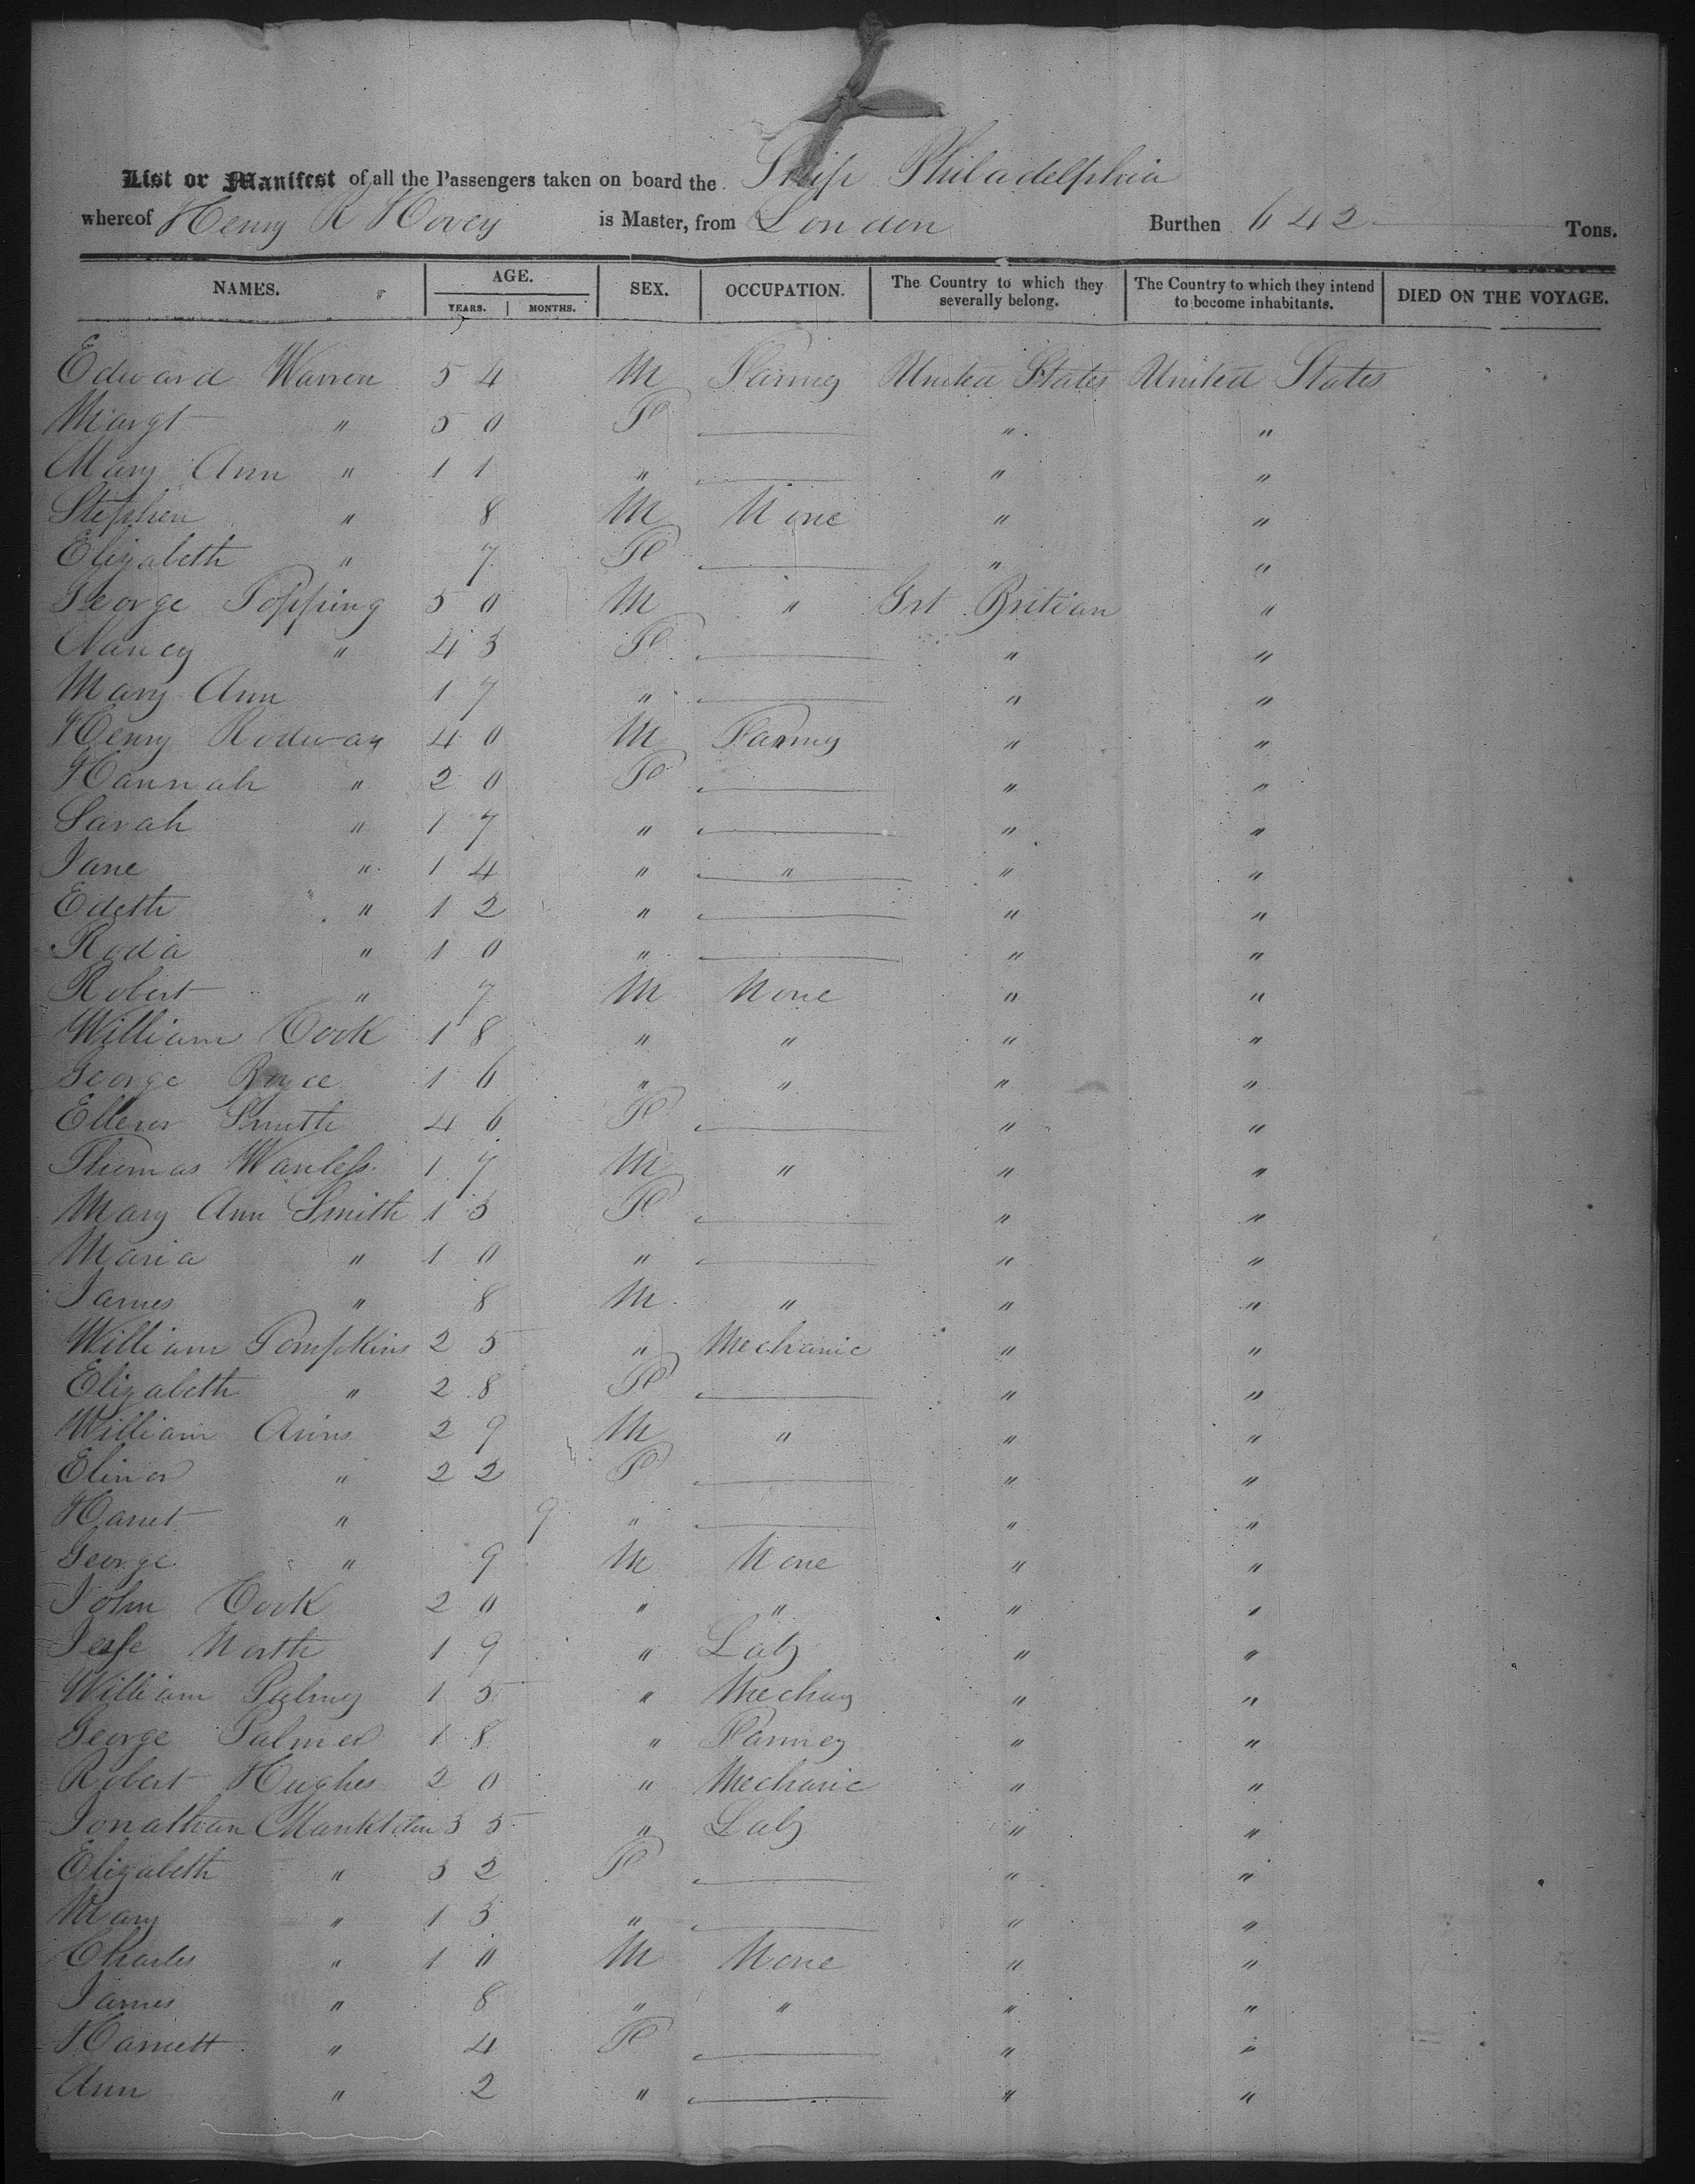 List or Manifest of all the Passengers taken on board the Ship Philadelphia
whereof Henry R Hovey is Master, from London Burthen 642 Tons.
NAMES. AGE. SEX. OCCUPATION. The Country to which they severally belong. The Country to which they intend to become inhabitants. DIED ON THE VOYAGE.
YEARS. MONTHS.
Edward Warren 54 M Farmer United States United States
Margt " 50 F " "
Mary Ann " 11 " " "
Stephen " 8 M None " "
Elizabeth " 7 F " "
George Topping 50 M " Grt Britian "
Nancy " 43 F " "
Mary Ann 17 " " "
Henry Rodway 40 M Farmer " "
Hannah " 20 F " "
Sarah " 17 " " "
Jane " 14 " " " "
Edeth " 12 " " "
Roda " 10 " " "
Robert " 7 M None " "
William Cook 18 " " " "
George Royce 16 " " " "
Ellenor Smith 46 F " "
Thomas Wanless 17 M " " "
Mary Ann Smith 13 F " "
Maria " 10 " " "
James " 8 M " " "
William Tompkins 25 " Mechanic " "
Elizabeth " 28 F " "
William 29 M " " "
Elinor " 22 F " "
Harriet " 9 " " "
George " 9 M None " "
John Cook 20 " " " "
Jesse North 19 " Labr " "
William Palmer 15 " Mechan " "
George Palmer 18 " Farmer " "
Robert Hughes 20 " Mechanic " "
Jonathan 35 " Labr " "
Elizabeth " 32 F " "
Mary " 13 " " "
Charles " 10 M None " "
James " 8 " " " "
Harriett " 4 F " "
Ann " 2 " " "